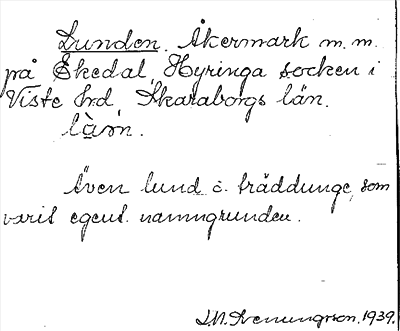 Lunden. Åkermark m.m.
på Ekedal, Hyringa socken i
Viste hrd, Skaraborgs län.
làn.
Även lund è. träddunge, som
varit egentl. namngrunden.
J.N. Svenungson. 1939.